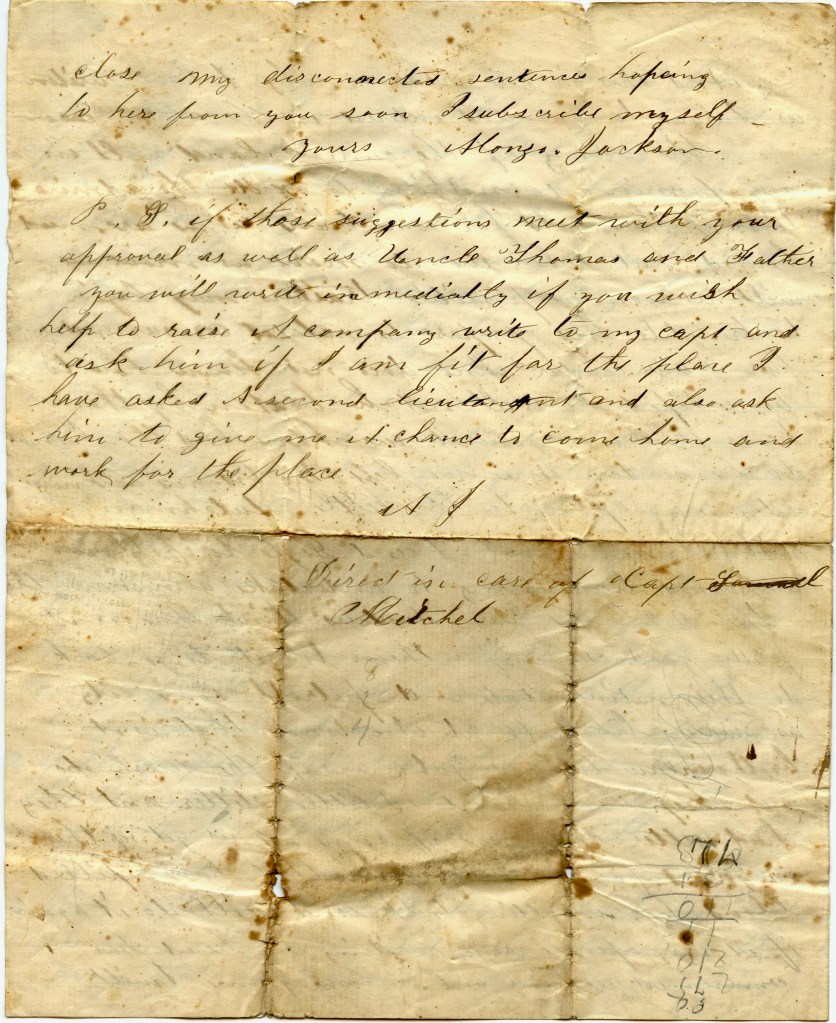 close my disconnected sentences hopeing
to here from you soon I subscribe myself
yours Alonzo. Jackson.
P. S. if those suggestions meet with your
approval as well as Uncle Thomas and Father
you will write immediatly if you wish
help to raise A company write to my capt and
ask him if I am fit for the place I
have asked A second lieutenant and also ask
him to give me A chance to come home and
work for the place
A J
Direct in care of Capt
Mitchel